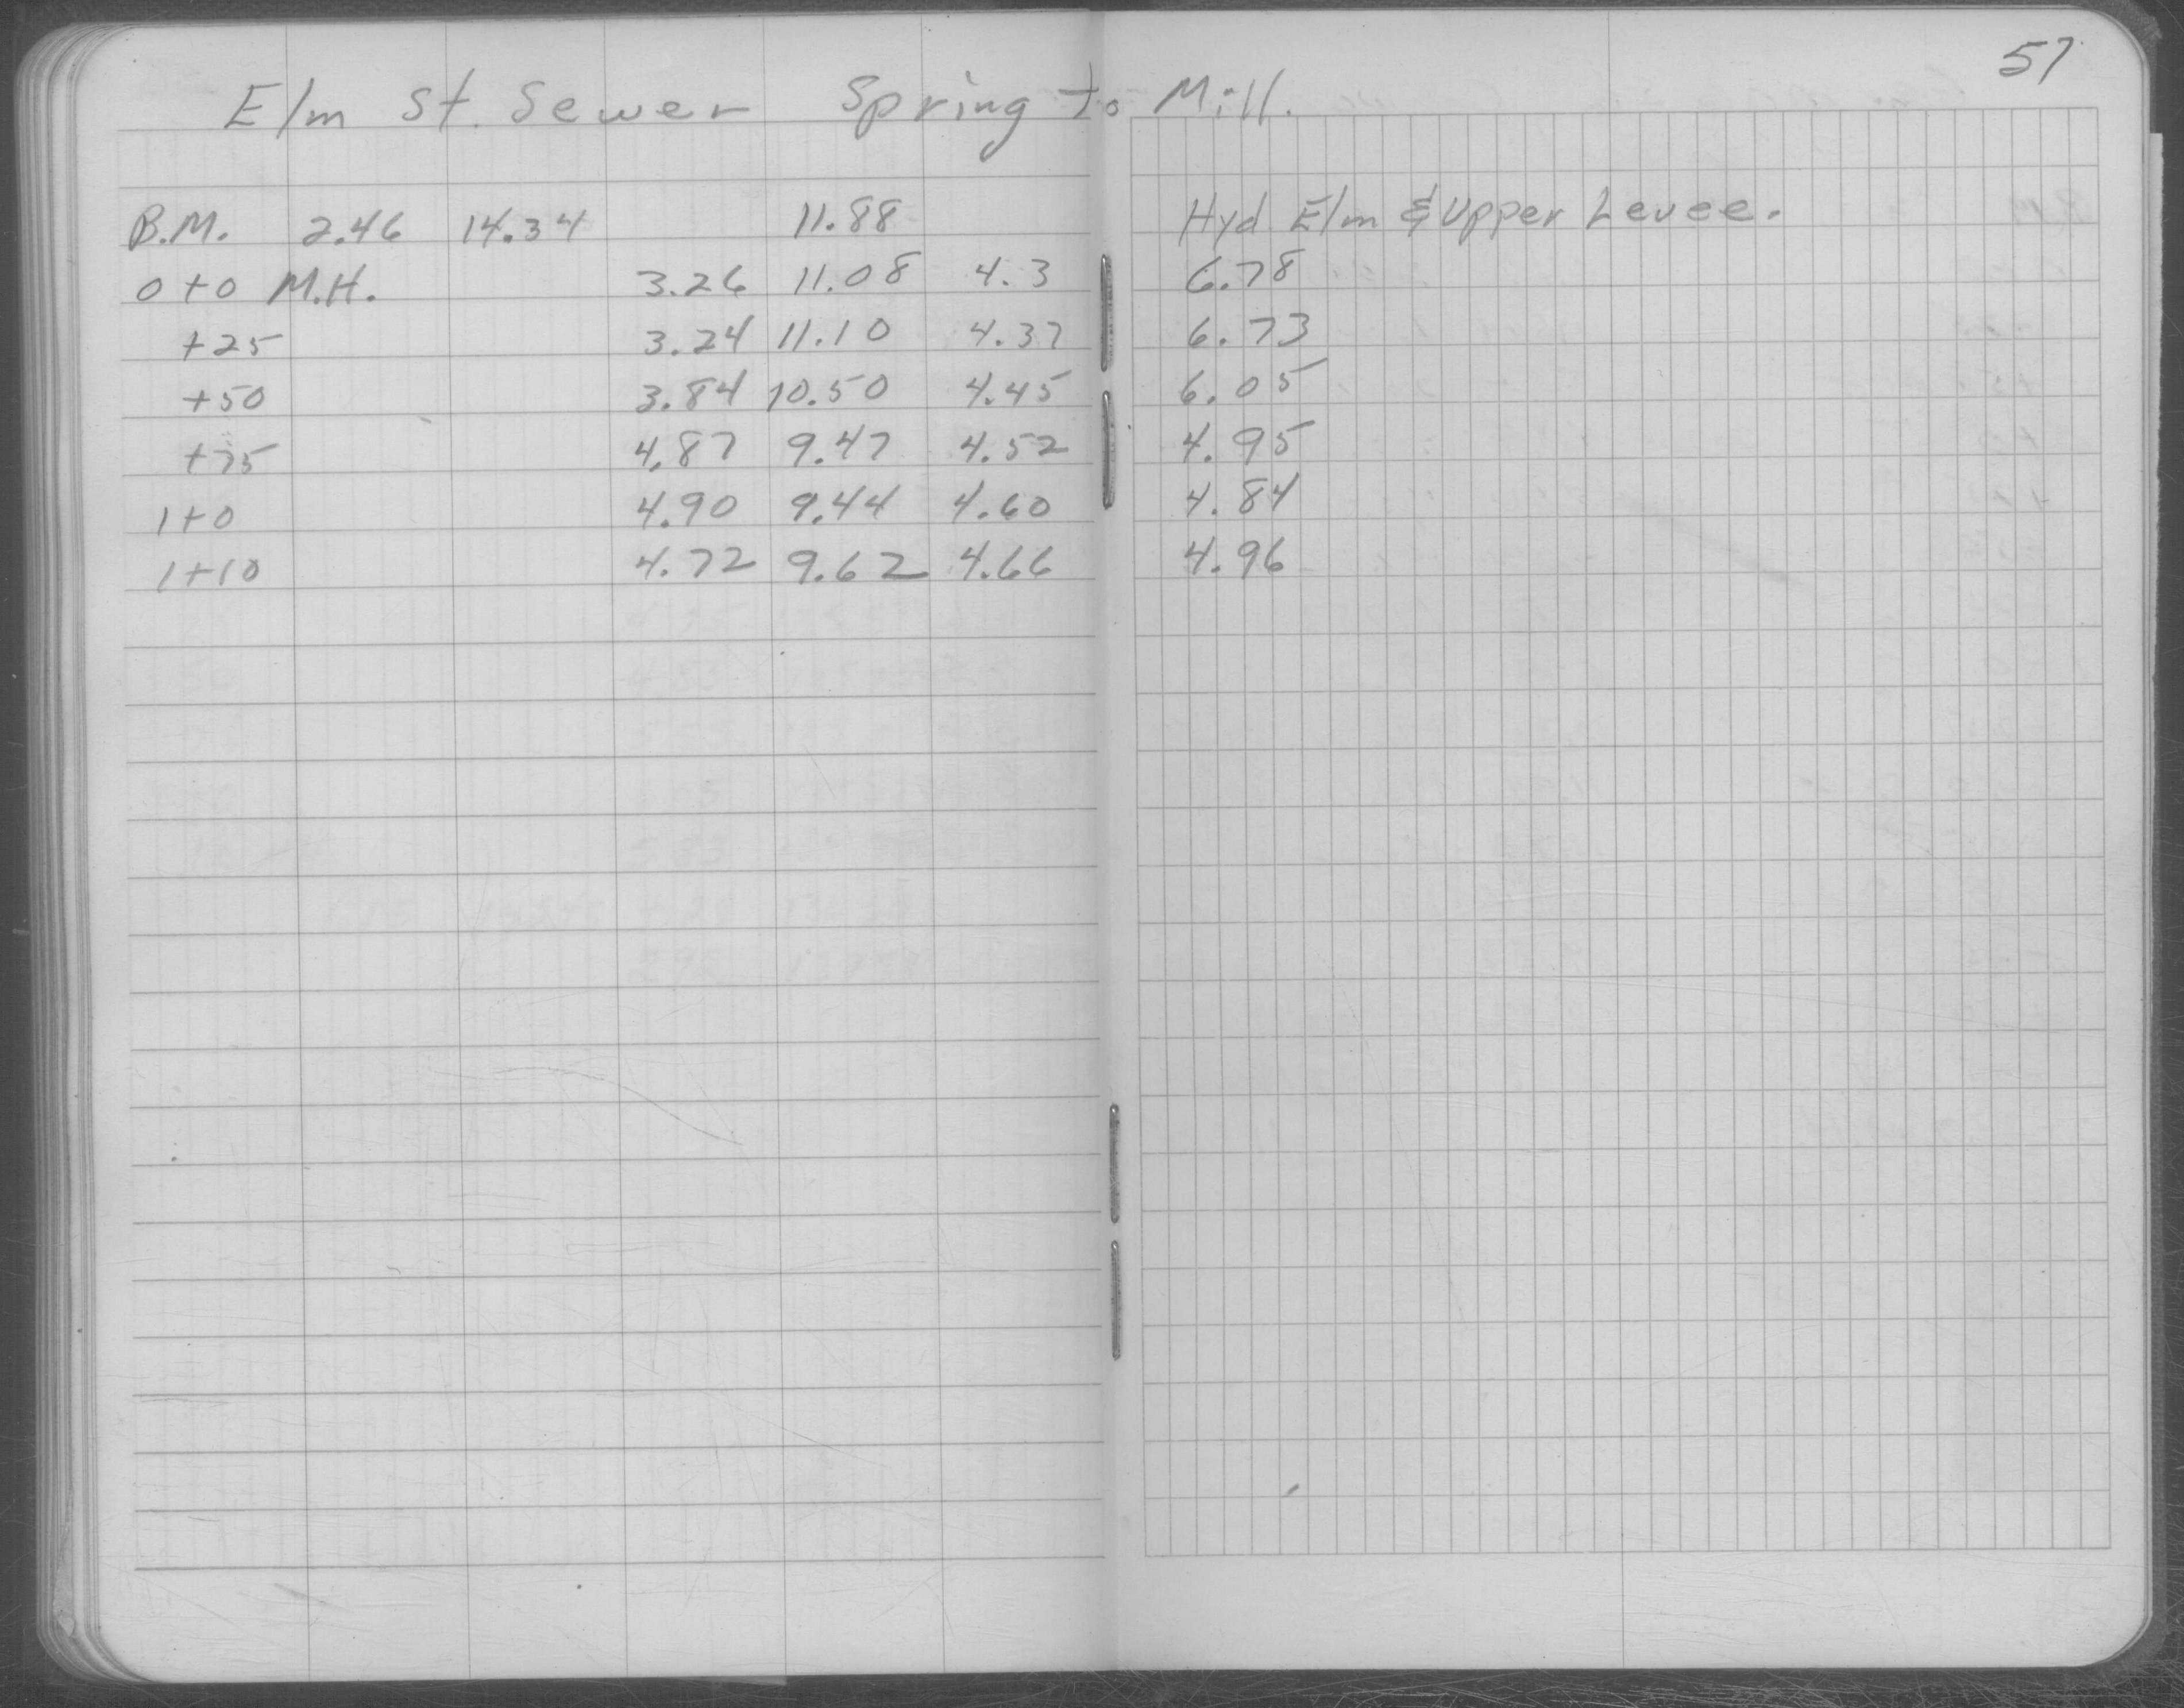 57
Elm St. Sewer Spring to Mill.
B.M. 2.46 14.34 11.88 Hyd Elm & Upper Levee.
0+0 M.H. 3.26 11.08 4.3 6.78
+25 3.24 11.10 4.37 6.73
+50 3.84 10.50 4.45 6.05
+75 4.87 9.47 4.52 4.95
1+0 4.90 9.44 4.60 4.84
1+10 4.72 9.62 4.66 4.96